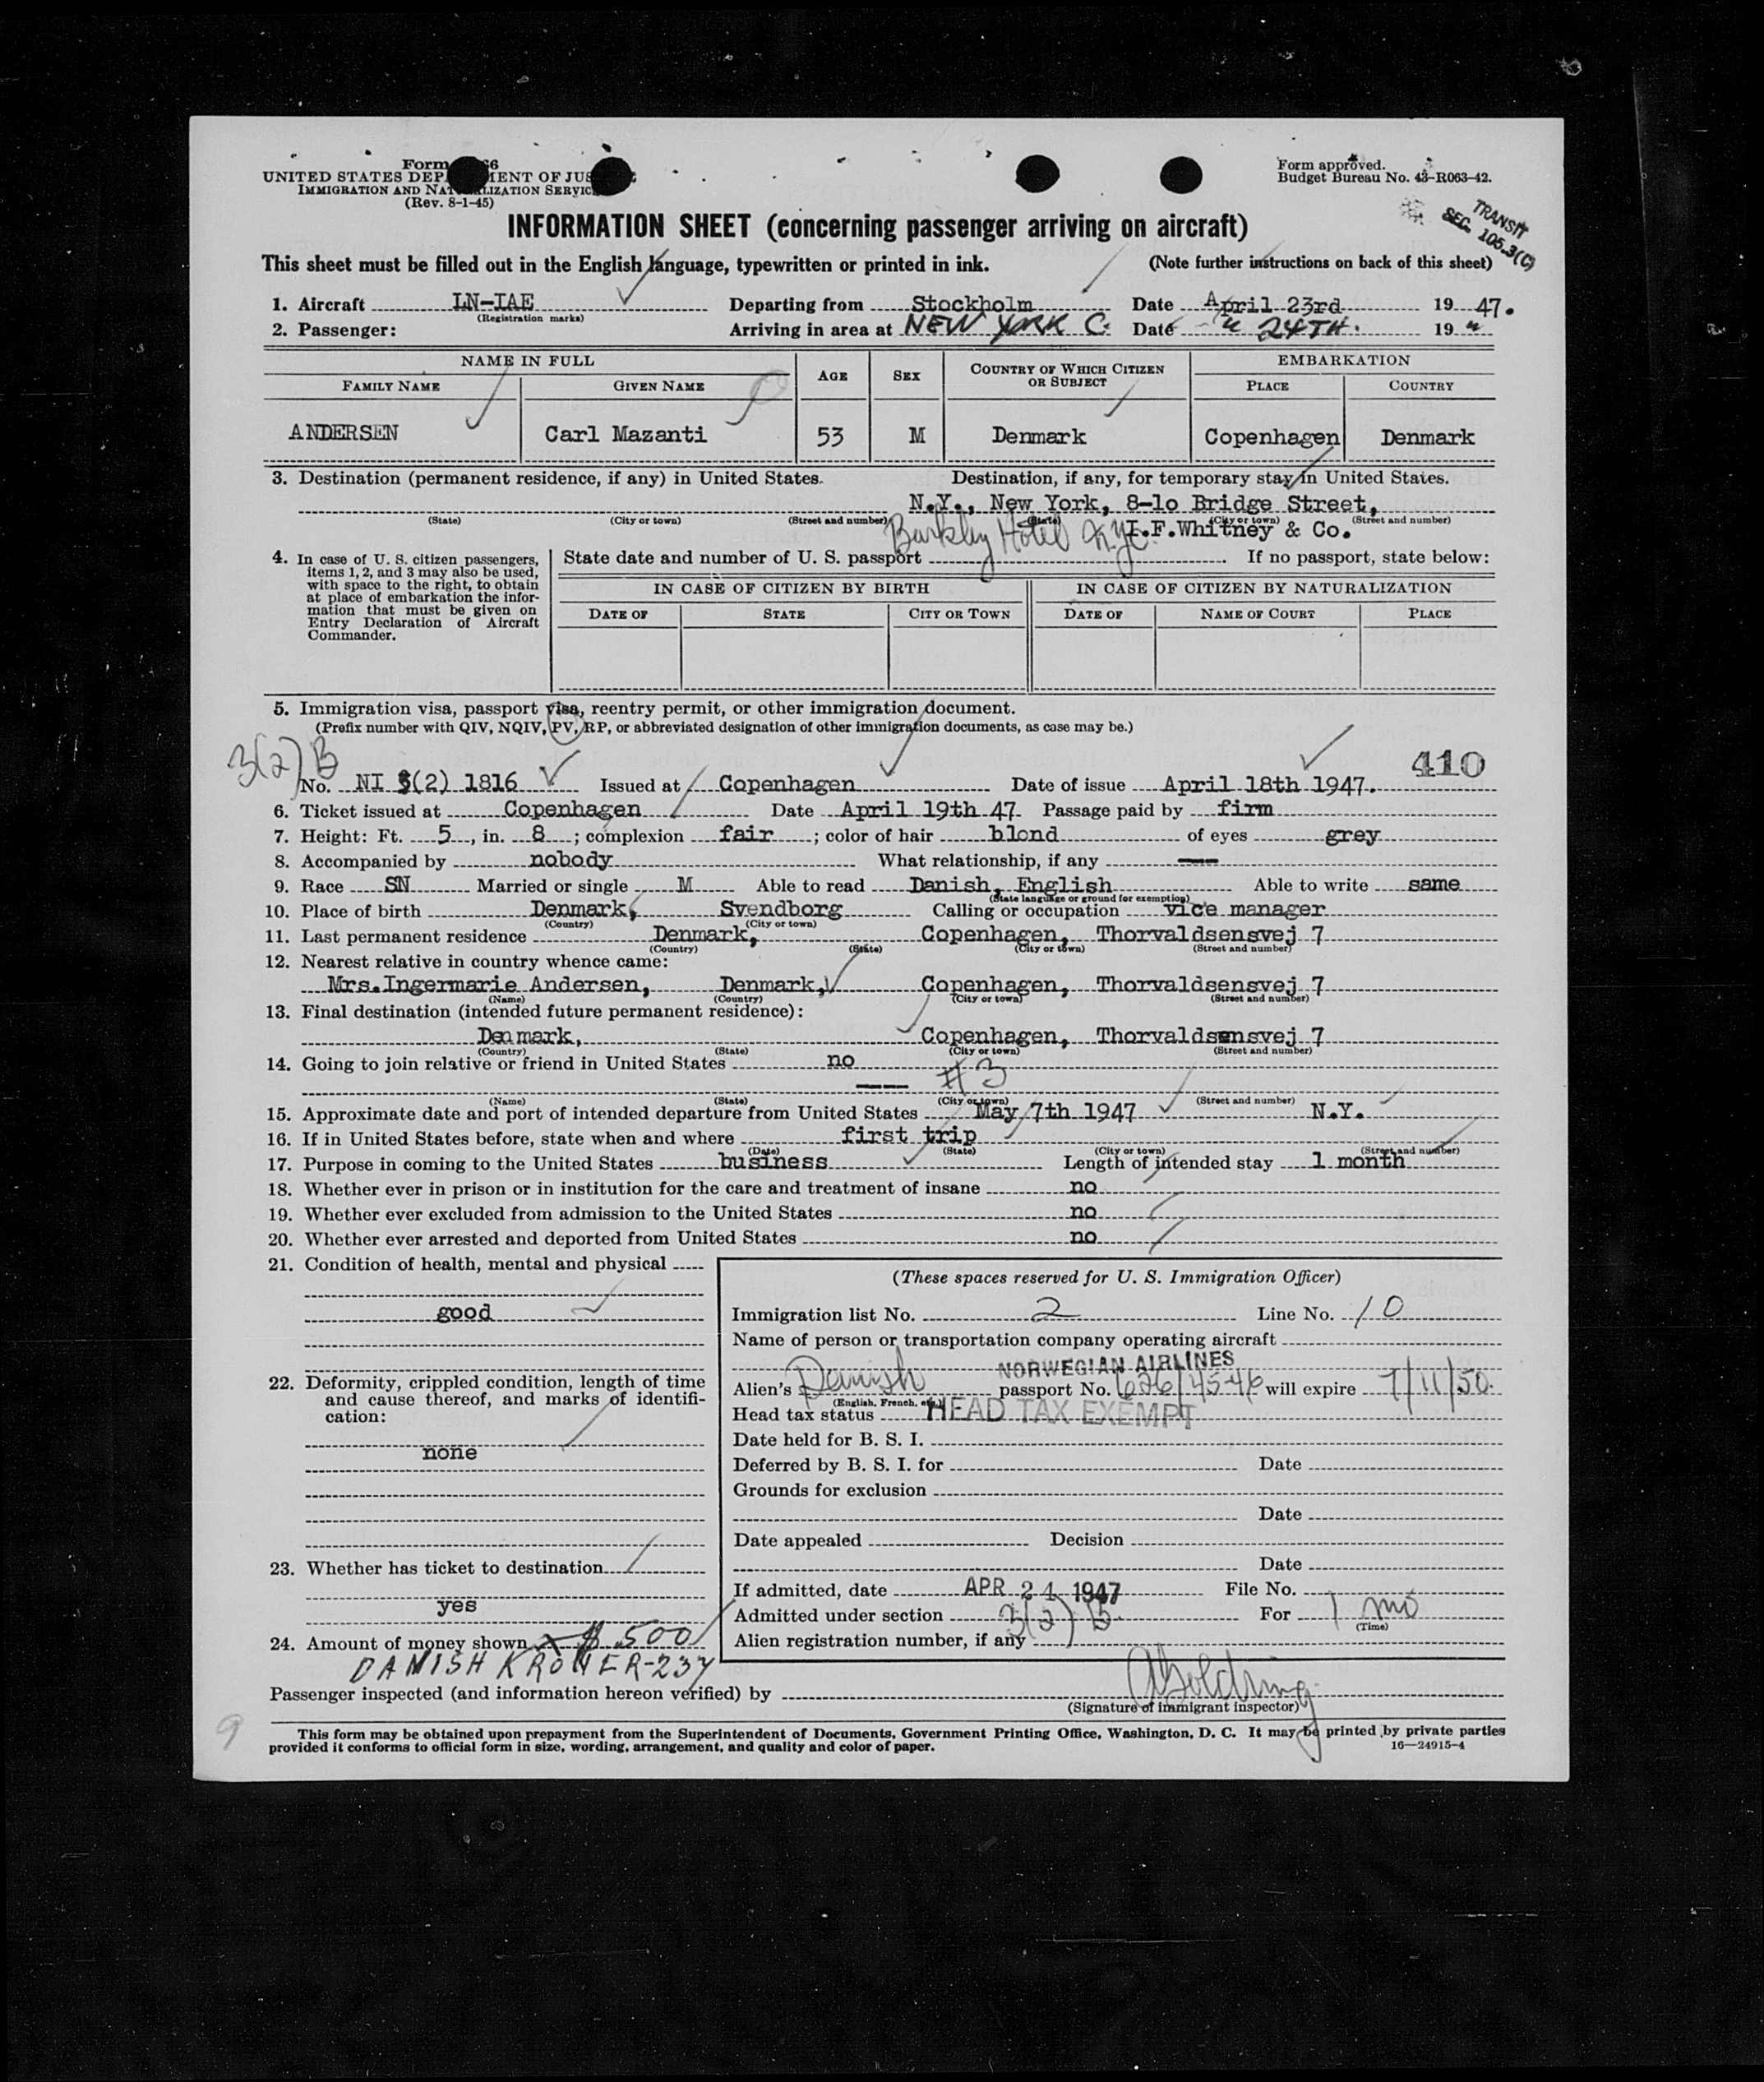 Form 66
UNITED STATES DEP MENT OF JUS
IMMIGRATION AND NAT LIZATION SERVIC
(Rev. 8-1-45)
Form approved.
Budget Bureau No. 43-R063-42.
TRANSIT
SEC. 105.3(C)
INFORMATION SHEET (concerning passenger arriving on aircraft)
This sheet must be filled out in the English language, typewritten or printed in ink. (Note further instructions on back of this sheet)
1. Aircraft LN-IAE Departing from Stockholm Date April 23rd 19 47.
(Registration marks)
2. Passenger: Arriving in area at NEW YORK C. Date " 24TH. 19 "
NAME IN FULL AGE SEX COUNTRY OF WHICH CITIZEN OR SUBJECT EMBARKATION
FAMILY NAME GIVEN NAME PLACE COUNTRY
ANDERSEN Carl Mazanti 53 M Denmark Copenhagen Denmark
3. Destination (permanent residence, if any) in United States. Destination, if any, for temporary stay in United States.
N.Y., New York, 8-lo Bridge Street,
(State) (City or town) (Street and number) (State) (City or town) (Street and number)
Barkley Hotel N.Y.C. I.F.Whitney & Co.
4. In case of U. S. citizen passengers, items 1, 2, and 3 may also be used, with space to the right, to obtain at place of embarkation the information that must be given on Entry Declaration of Aircraft Commander.
State date and number of U. S. passport If no passport, state below:
IN CASE OF CITIZEN BY BIRTH IN CASE OF CITIZEN BY NATURALIZATION
DATE OF STATE CITY OR TOWN DATE OF NAME OF COURT PLACE
5. Immigration visa, passport visa, reentry permit, or other immigration document.
(Prefix number with QIV, NQIV, PV, RP, or abbreviated designation of other immigration documents, as case may be.)
3(2) B 410
No. NI 3(2) 1816 Issued at Copenhagen Date of issue April 18th 1947.
6. Ticket issued at Copenhagen Date April 19th 47 Passage paid by firm
7. Height: Ft. 5, in. 8; complexion fair; color of hair blond of eyes grey
8. Accompanied by nobody What relationship, if any ---
9. Race SN Married or single M Able to read Danish, English Able to write same
(State language or ground for exemption)
10. Place of birth Denmark, Svendborg Calling or occupation vice manager
(Country) (City or town)
11. Last permanent residence Denmark, Copenhagen, Thorvaldsensvej 7
(Country) (State) (City or town) (Street and number)
12. Nearest relative in country whence came:
Mrs.Ingermarie Andersen, Denmark, Copenhagen, Thorvaldsensvej 7
(Name) (Country) (City or town) (Street and number)
13. Final destination (intended future permanent residence):
Denmark, Copenhagen, Thorvaldsensvej 7
(Country) (State) (City or town) (Street and number)
14. Going to join relative or friend in United States no
--- #3
(Name) (State) (City or town) (Street and number)
15. Approximate date and port of intended departure from United States May 7th 1947 N.Y.
16. If in United States before, state when and where first trip
(Date) (State) (City or town) (Street and number)
17. Purpose in coming to the United States business Length of intended stay 1 month
18. Whether ever in prison or in institution for the care and treatment of insane no
19. Whether ever excluded from admission to the United States no
20. Whether ever arrested and deported from United States no
21. Condition of health, mental and physical
good
22. Deformity, crippled condition, length of time and cause thereof, and marks of identification:
none
23. Whether has ticket to destination
yes
24. Amount of money shown $ 500
DANISH KRONER-237
(These spaces reserved for U. S. Immigration Officer)
Immigration list No. 2 Line No. 10
Name of person or transportation company operating aircraft
NORWEGIAN AIRLINES
Alien's Danish passport No. 626/45-46 will expire 7/11/50.
(English, French, etc.)
Head tax status HEAD TAX EXEMPT
Date held for B. S. I.
Deferred by B. S. I. for Date
Grounds for exclusion
Date
Date appealed Decision
Date
If admitted, date APR 24 1947 File No.
Admitted under section 3(2) B. For 1 mo
(Time)
Alien registration number, if any
Passenger inspected (and information hereon verified) by
(Signature of immigrant inspector)
9
This form may be obtained upon prepayment from the Superintendent of Documents, Government Printing Office, Washington, D. C. It may be printed by private parties
provided it conforms to official form in size, wording, arrangement, and quality and color of paper. 16—24915-4